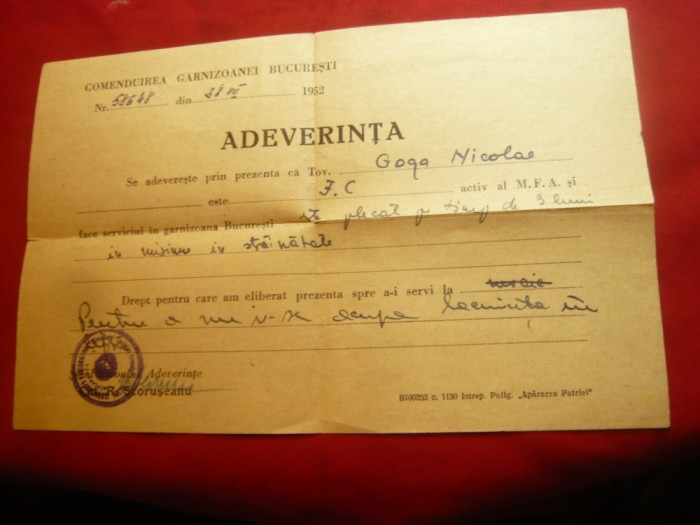 COMENDUIREA GARNIZOANEI BUCUREȘTI
Nr. 58648 din 28 VII 1952
ADEVERINȚA
Se adeverește prin prezenta că Tov. Goga Nicolae
este F.C activ al M.F.A. și
face serviciul în garnizoana București este plecat pe timp de 3 luni
in misiune in străinătate
Drept pentru care am eliberat prezenta spre a-i servi la
Pentru a nu i-se ocupa locuința
Adeverințe
R. Scorușeanu
B100252 c. 1130 Intrep. Polig. „Apărarea Patriei"